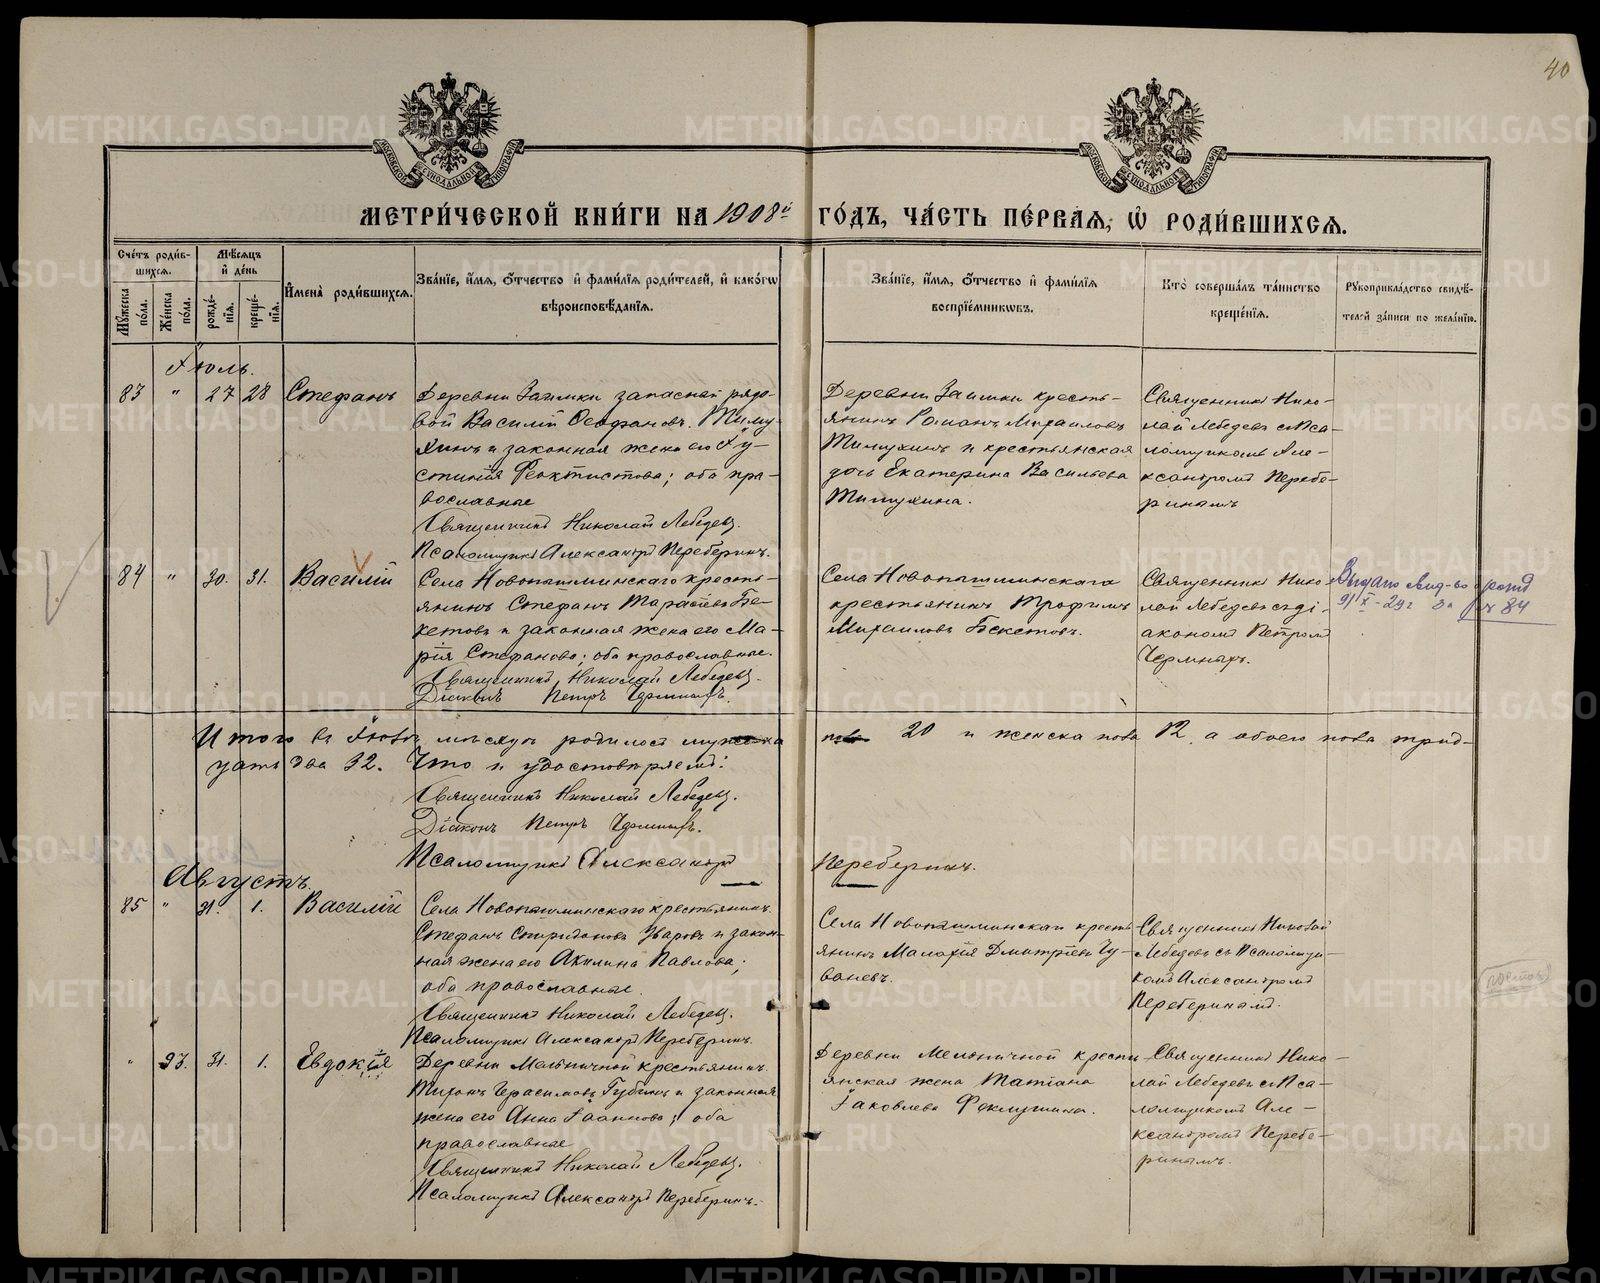 40
МОСКОВСКОЙ СѴНОДАЛЬНОЙ ТИПОГРАФІИ
МОСКОВСКОЙ СѴНОДАЛЬНОЙ ТИПОГРАФІИ
МЕТРИ́ЧЕСКОЙ КНИ́ГИ НА 1908й ГО́ДЪ, ЧА́СТЬ ПЕ́РВАѦ, Ѡ҆ РОДИ́ВШИХСѦ.
Сче́тъ роди́в-
шихсѧ.
Мѣ́сѧцъ
и҆ де́нь
Мꙋ́жеска по́ла.
Же́нска по́ла.
рожде́нїѧ.
креще́нїѧ.
И҆мена̀ роди́вшихсѧ.
Зва́нїе, и҆́мѧ, ѻ҆́тчество и҆ фами́лїѧ роди́телей, и҆ како́гѡ
вѣроисповѣ́данїѧ.
Зва́нїе, и҆́мѧ, ѻ҆́тчество и҆ фами́лїѧ
воспрїе́мникѡвъ.
Кто̀ соверша́лъ та́инство
креще́нїѧ.
Рꙋкоприкла́дство свидѣ́-
телей за́писи по жела́нїю.
Іюль.
83 " 27 28 Стефанъ
Деревни Заимки запасный рядо-
вой Василій Ѳеофановъ Тиму-
хинъ и законная жена его Іу-
стинія Феоктистова; оба пра-
вославные
Священникъ Николай Лебедевъ.
Псаломщикъ Александръ Переберинъ.
Деревни Заимки кресть-
янинъ Романъ Михаиловъ
Тимухинъ и крестьянская
дочь Екатерина Васильева
Тимухина.
Священникъ Нико-
лай Лебедевъ съ Пса-
ломщикомъ Але-
ксандромъ Перебе-
ринымъ
84 " 30. 31. Василій
Села Новопышминскаго кресть-
янинъ Стефанъ Тарасіевъ Бе-
кетовъ и законная жена его Ма-
рія Стефанова; оба православные.
Священникъ Николай Лебедевъ.
Діаконъ Петръ Чермныхъ.
Села Новопышминскаго
крестьянинъ Трофимъ
Михаиловъ Бекетовъ.
Священникъ Нико-
лай Лебедевъ съ ді-
акономъ Петромъ
Чермныхъ.
Выдано свид-во о рожд
9/IX-29г За № 84
Итого въ Іюлѣ мѣсяцѣ родилось мужеска
пола 20 и женска пола 12, а обоего пола трид-
цать два 32. Что и удостовѣряемъ:
Священникъ Николай Лебедевъ.
Діаконъ Петръ Чермныхъ.
Псаломщикъ Александръ Переберинъ.
Августъ.
85 " 31. 1. Василій
Села Новопышминскаго крестьянинъ
Стефанъ Спиридоновъ Уваровъ и закон-
ная жена его Акилина Павлова;
оба православные.
Священникъ Николай Лебедевъ.
Псаломщикъ Александръ Переберинъ.
Села Новопышминскаго кресть-
янинъ Малахія Дмитріевъ Чу-
ваневъ.
Священникъ Николай
Лебедевъ съ Псаломщи-
комъ Александромъ
Переберинымъ.
" 93. 31. 1. Евдокія
Деревни Мельничной крестьянинъ
Тихонъ Герасимовъ Губинъ и законная
жена его Анна Іоаннова; оба
православные
Священникъ Николай Лебедевъ.
Псаломщикъ Александръ Переберинъ.
Деревни Мельничной кресть-
янская жена Татіана
Іаковлева Феклушина.
Священникъ Нико-
лай Лебедевъ съ Пса-
ломщикомъ Але-
ксандромъ Перебе-
ринымъ.
METRIKI.GASO-URAL.RU